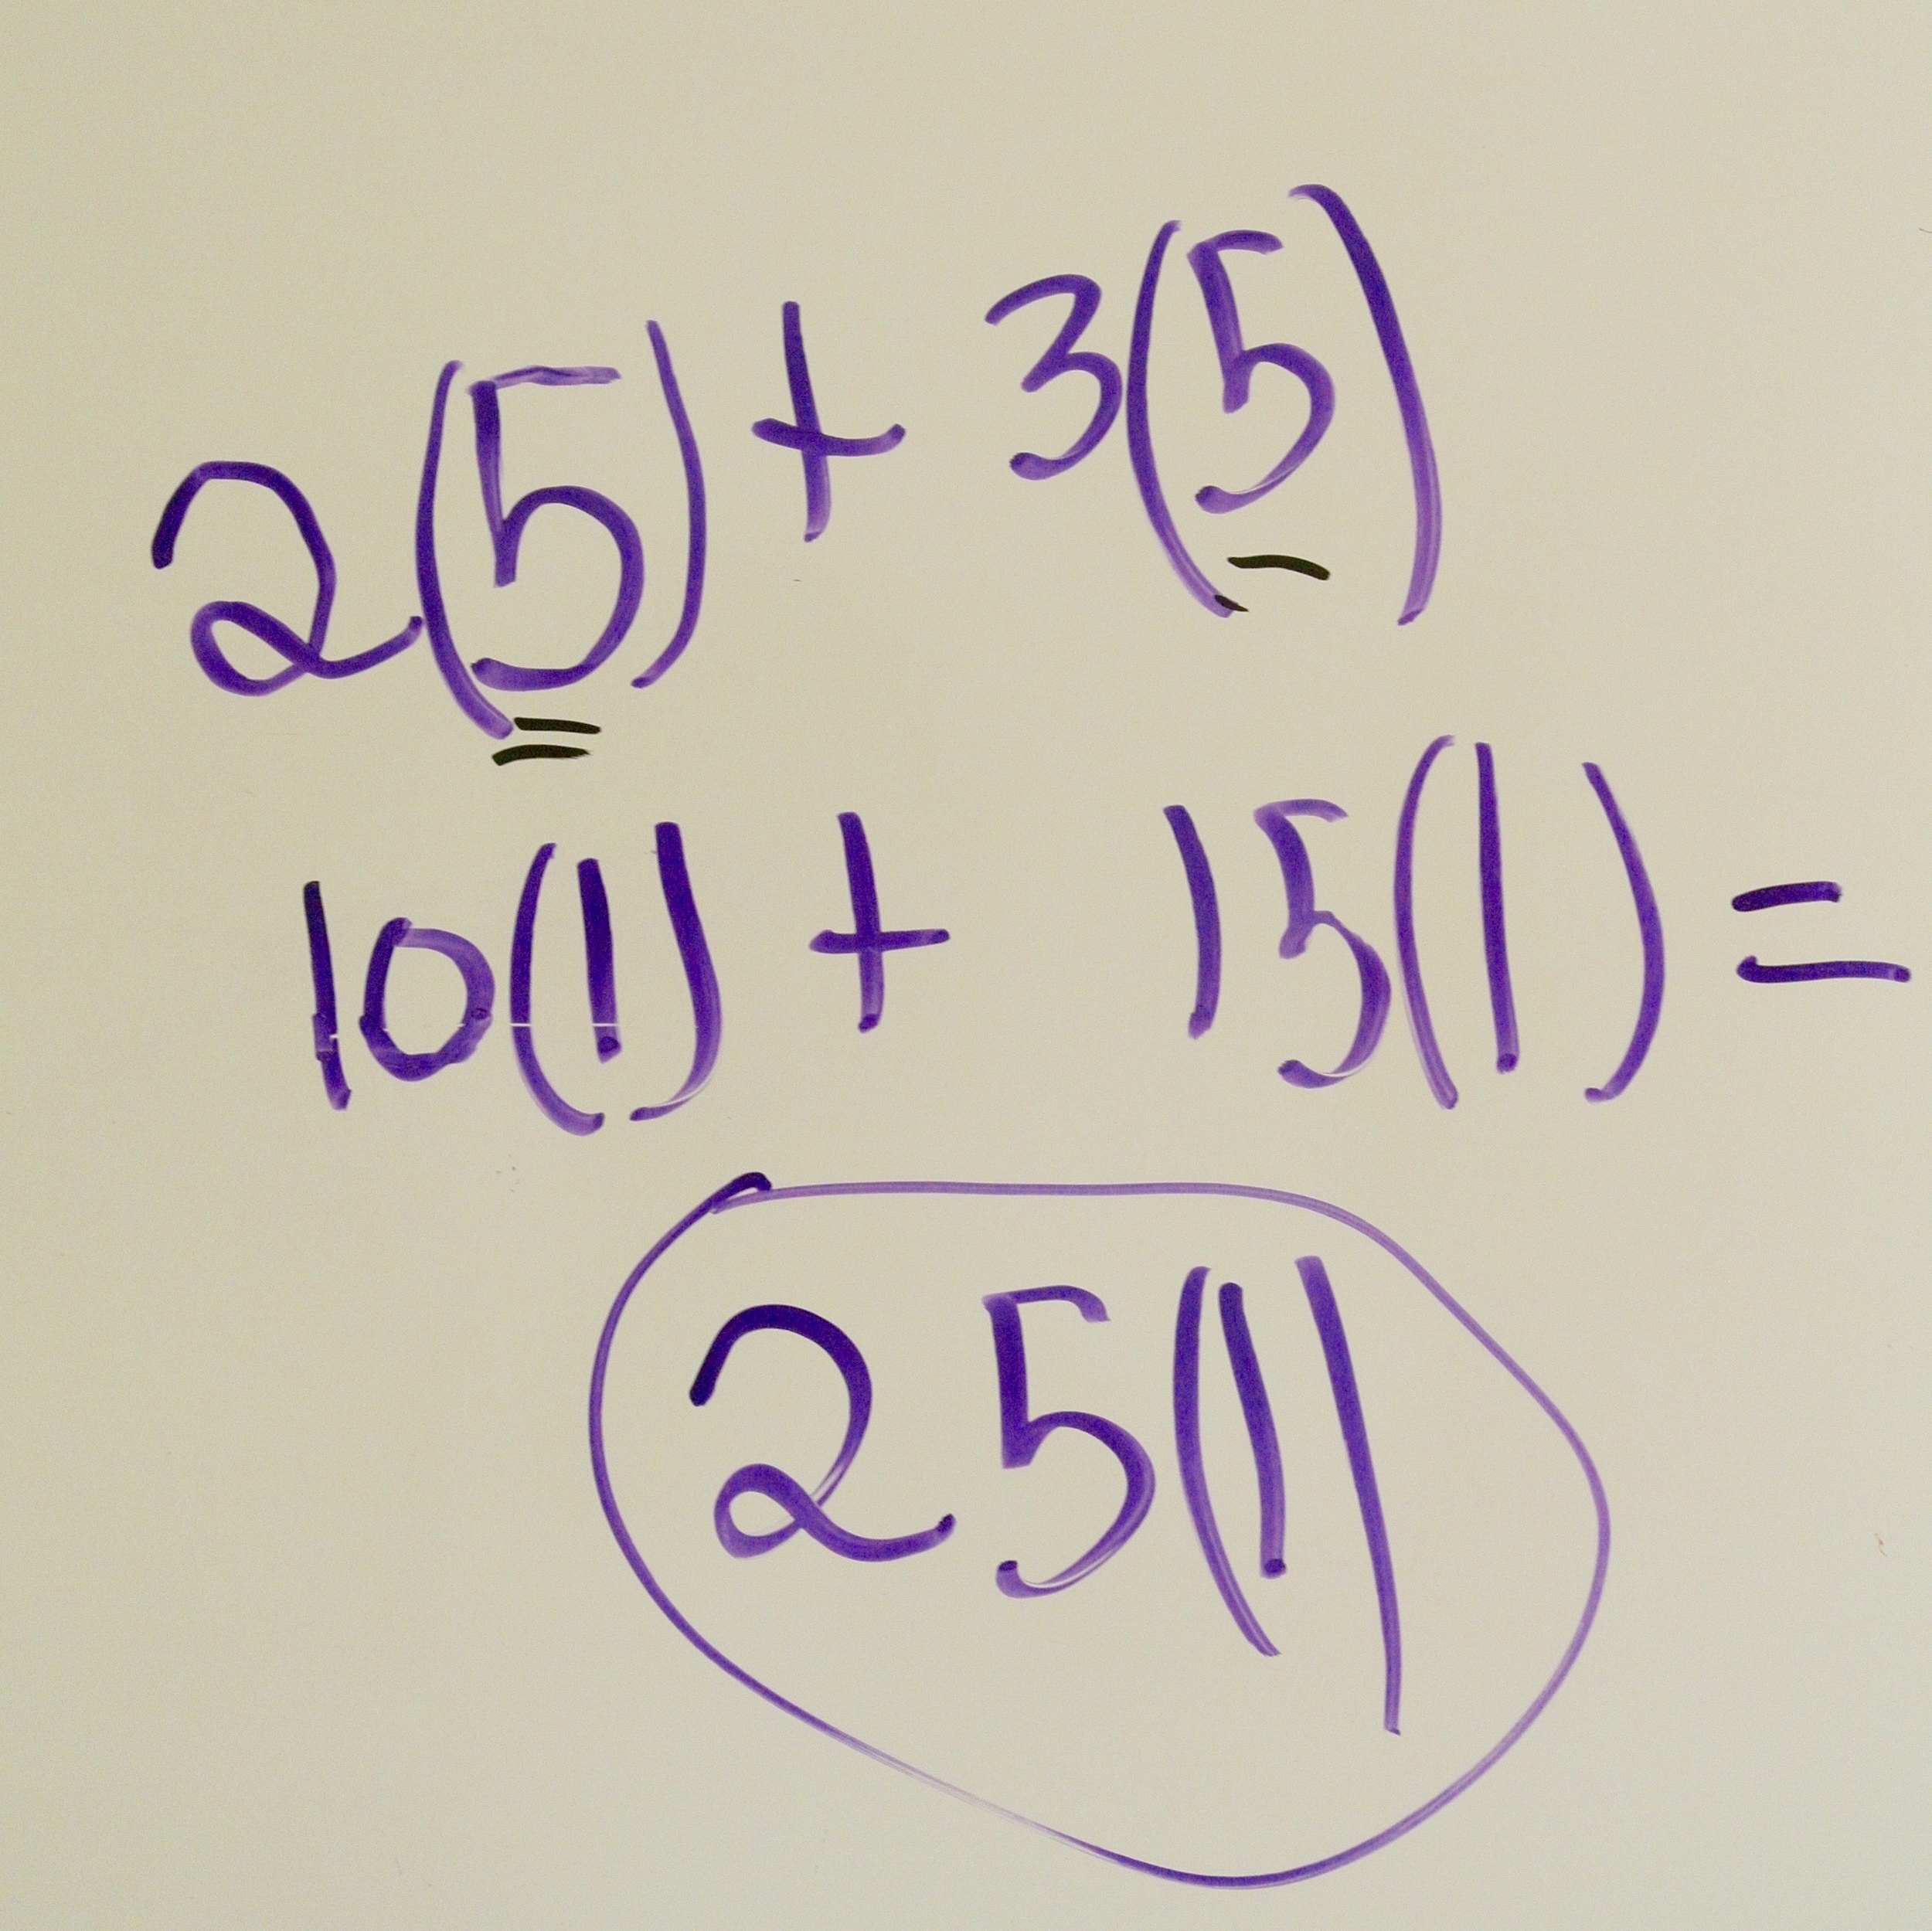 2(5) + 3(5)
10(1) + 15(1) =
25(1)